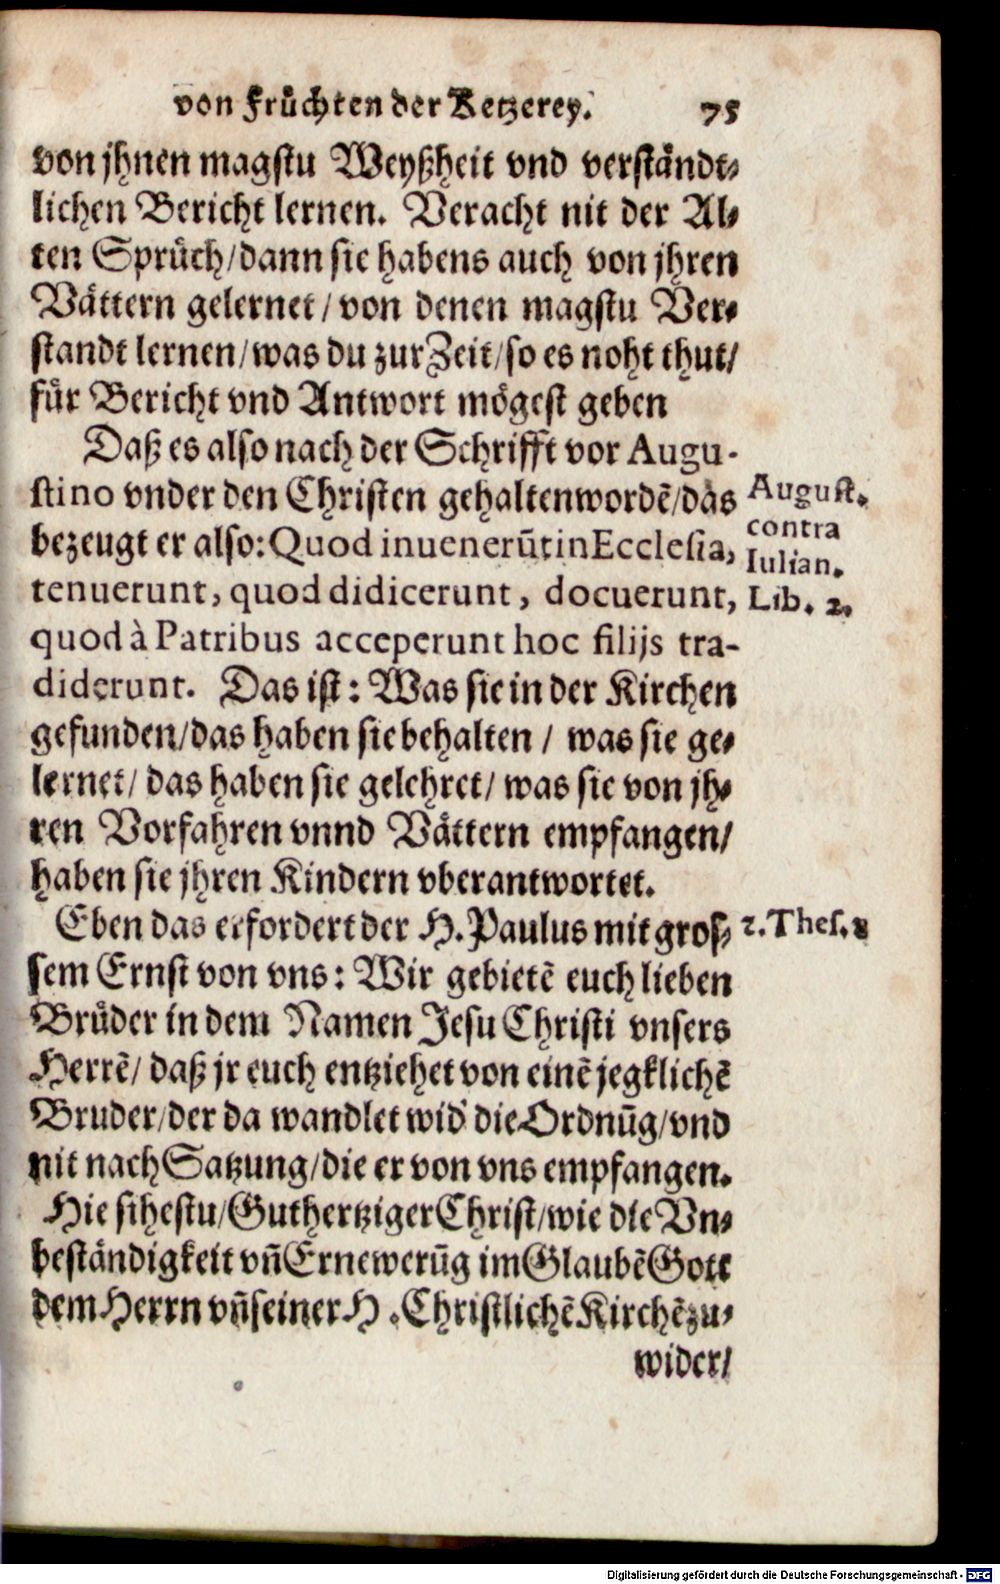 von Früchten der Ketzerey. 75
von jhnen magstu Weyßheit vnd verständt-
lichen Bericht lernen. Veracht nit der Al-
ten Sprüch/dann sie habens auch von jhren
Vättern gelernet/von denen magstu Ver-
standt lernen/was du zur Zeit/so es noht thut/
für Bericht vnd Antwort mögest geben
Daß es also nach der Schrifft vor Augu-
stino vnder den Christen gehaltenwordē/das
August.
contra
Iulian.
Lib. 2.
bezeugt er also: Quod inuenerūt in Ecclesia,
tenuerunt, quod didicerunt, docuerunt,
quod à Patribus acceperunt hoc filijs tra-
diderunt. Das ist: Was sie in der Kirchen
gefunden/das haben sie behalten/ was sie ge-
lernet/ das haben sie gelehret/ was sie von jh-
ren Vorfahren vnnd Vättern empfangen/
haben sie jhren Kindern vberantwortet.
Eben das erfordert der H. Paulus mit gros-
2. Thes.
sem Ernst von vns: Wir gebietē euch lieben
Brüder in dem Namen Jesu Christi vnsers
Herrē/ daß jr euch entziehet von einē jegklichē
Bruder/der da wandlet wid' die Ordnūg/vnd
nit nach Satzung/die er von vns empfangen.
Hie sihestu/Guthertziger Christ/wie die Vn-
beständigkeit vn̄ Ernewerūg im Glaubē Gott
dem Herrn vn̄ seiner H. Christlichē Kirchē zu-
wider/
Digitalisierung gefördert durch die Deutsche Forschungsgemeinschaft - DFG